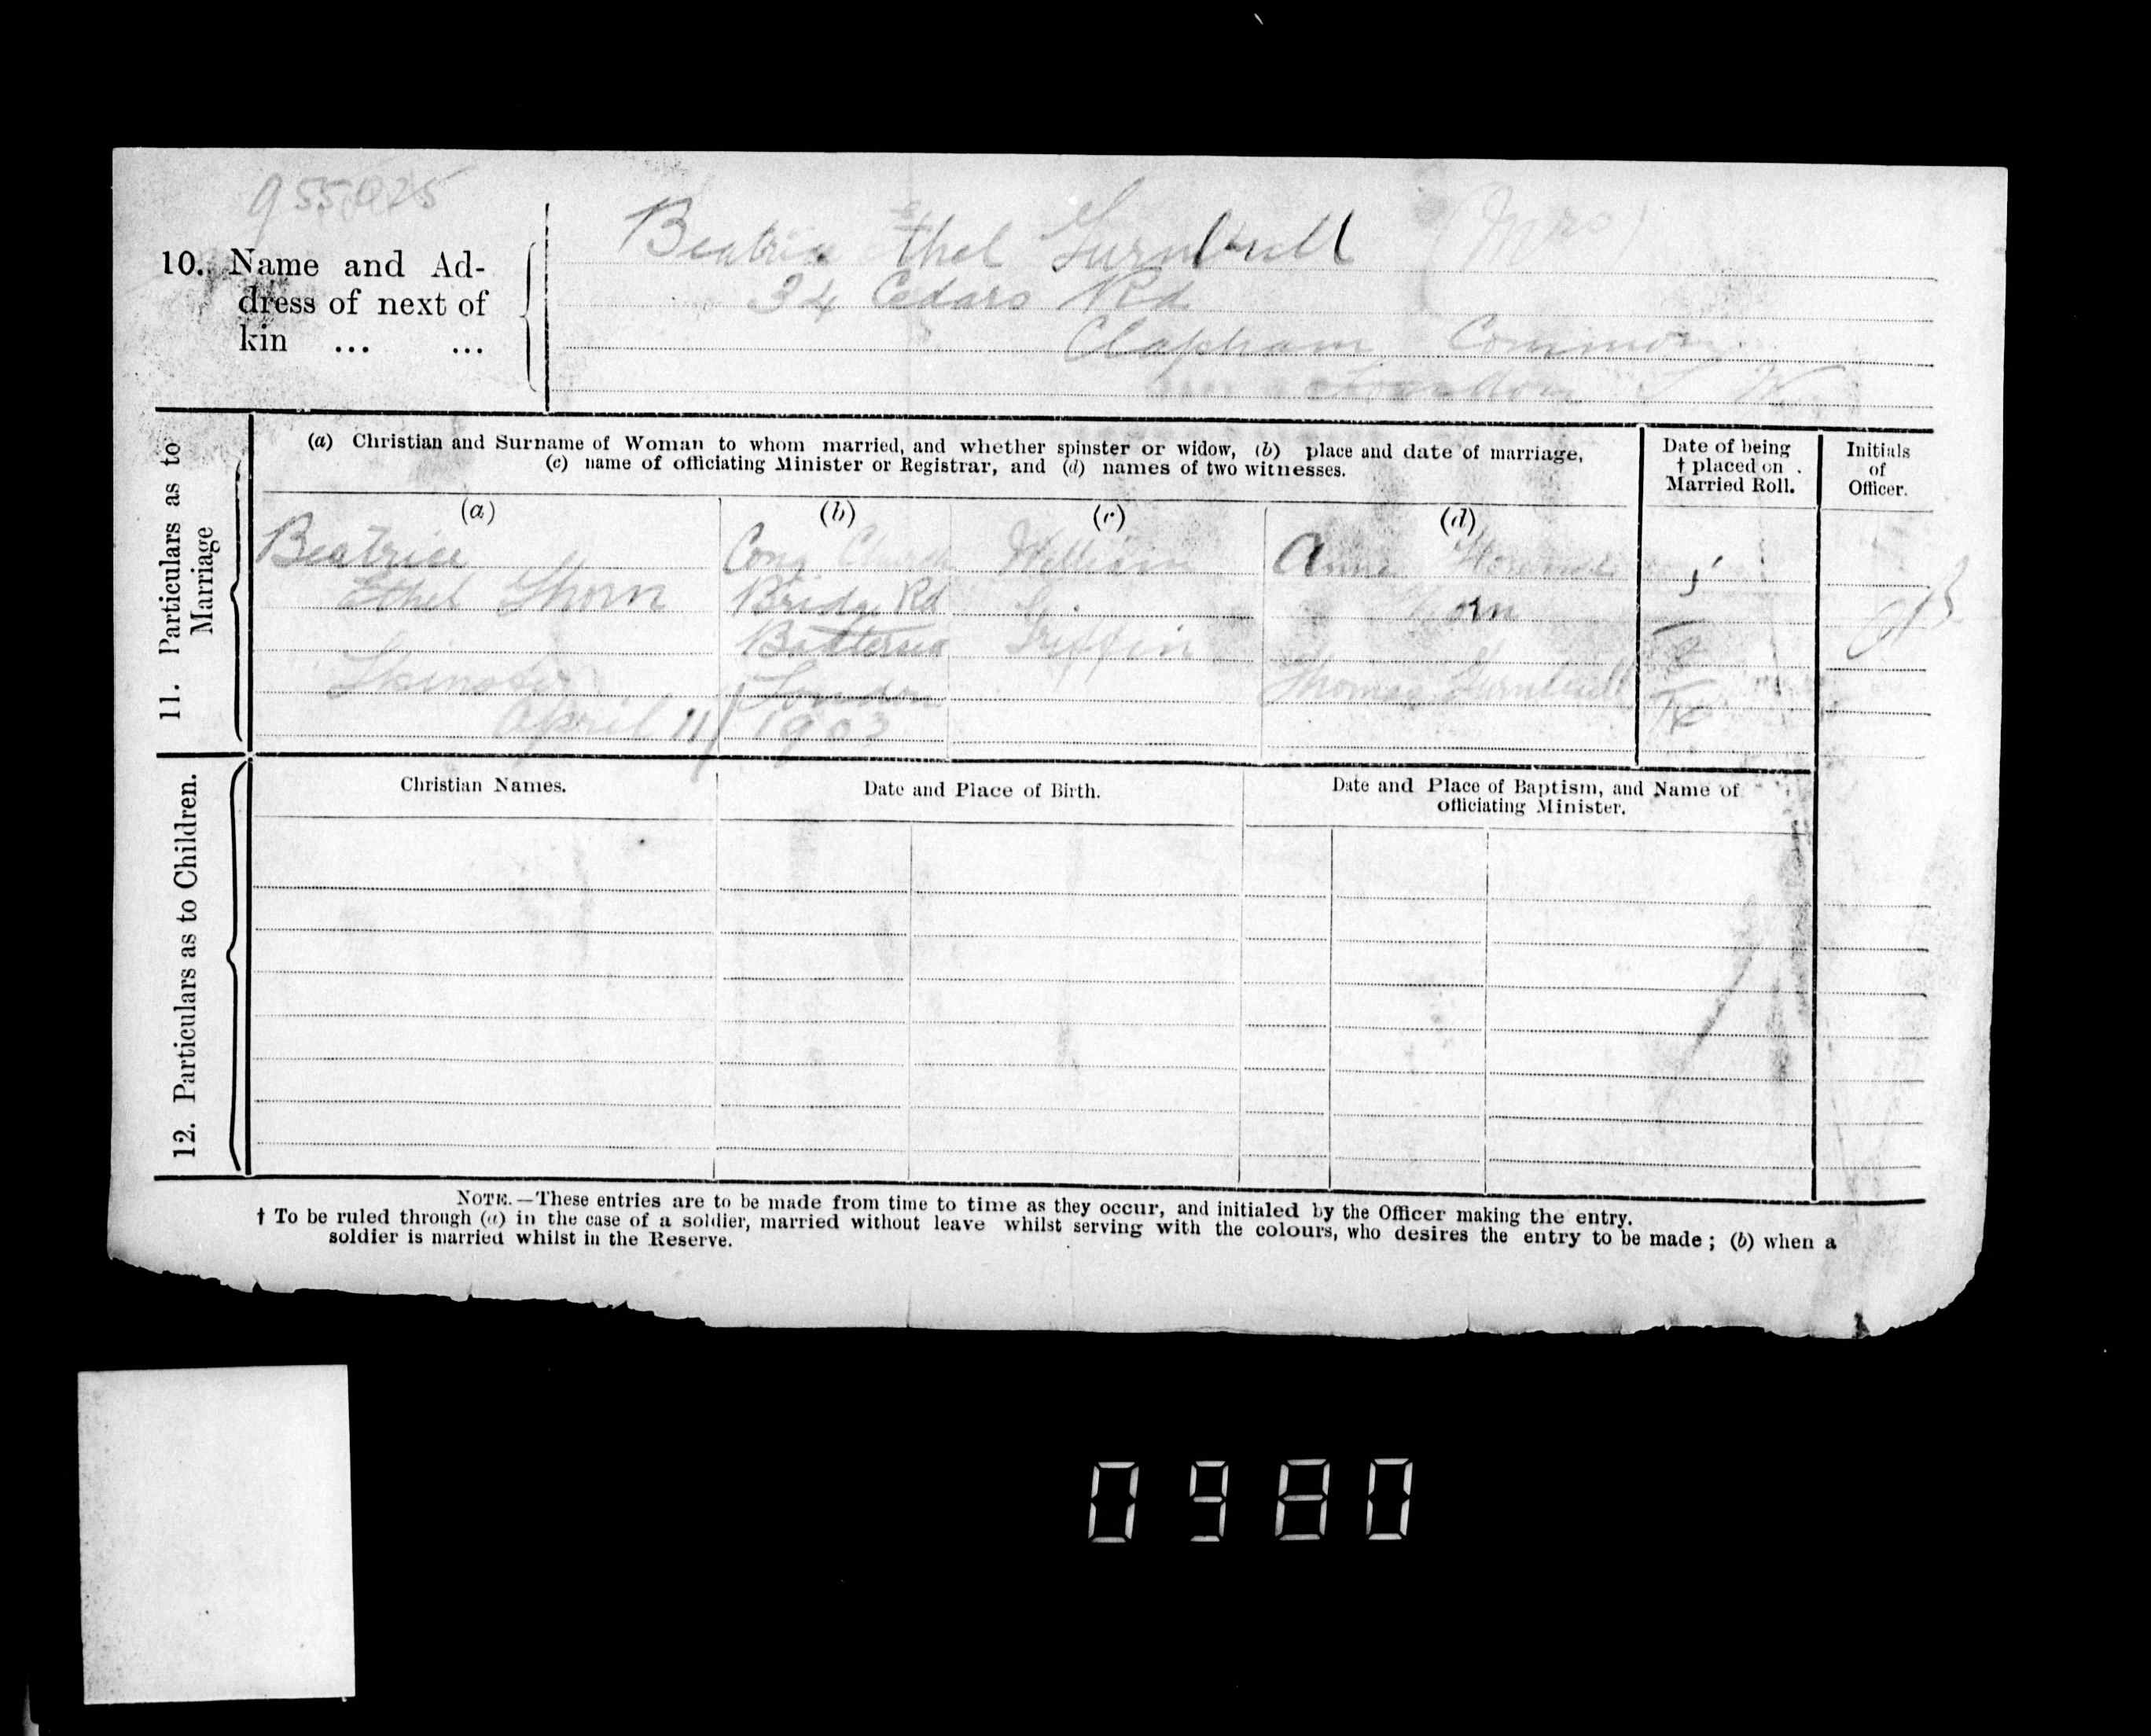 955025
10. Name and Ad-
dress of next of
kin ... ...
Beatrice Ethel Turnbull (Mrs)
34 Cedars Rd
Clapham Common
London S W
11. Particulars as to
Marriage
(a) Christian and Surname of Woman to whom married, and whether spinster or widow, (b) place and date of marriage,
(c) name of officiating Minister or Registrar, and (d) names of two witnesses.
Date of being
† placed on
Married Roll.
Initials
of
Officer.
(a) (b) (c) (d)
Beatrice Cong Church William Anna
Ethel Thorn Bridge Rd Thorn
Battersea Griffin
Spinster London Thomas Turnbull
April 11 / 1903
12. Particulars as to Children.
Christian Names. Date and Place of Birth. Date and Place of Baptism, and Name of
officiating Minister.
NOTE.—These entries are to be made from time to time as they occur, and initialed by the Officer making the entry.
† To be ruled through (a) in the case of a soldier, married without leave whilst serving with the colours, who desires the entry to be made; (b) when a
soldier is married whilst in the Reserve.
0980